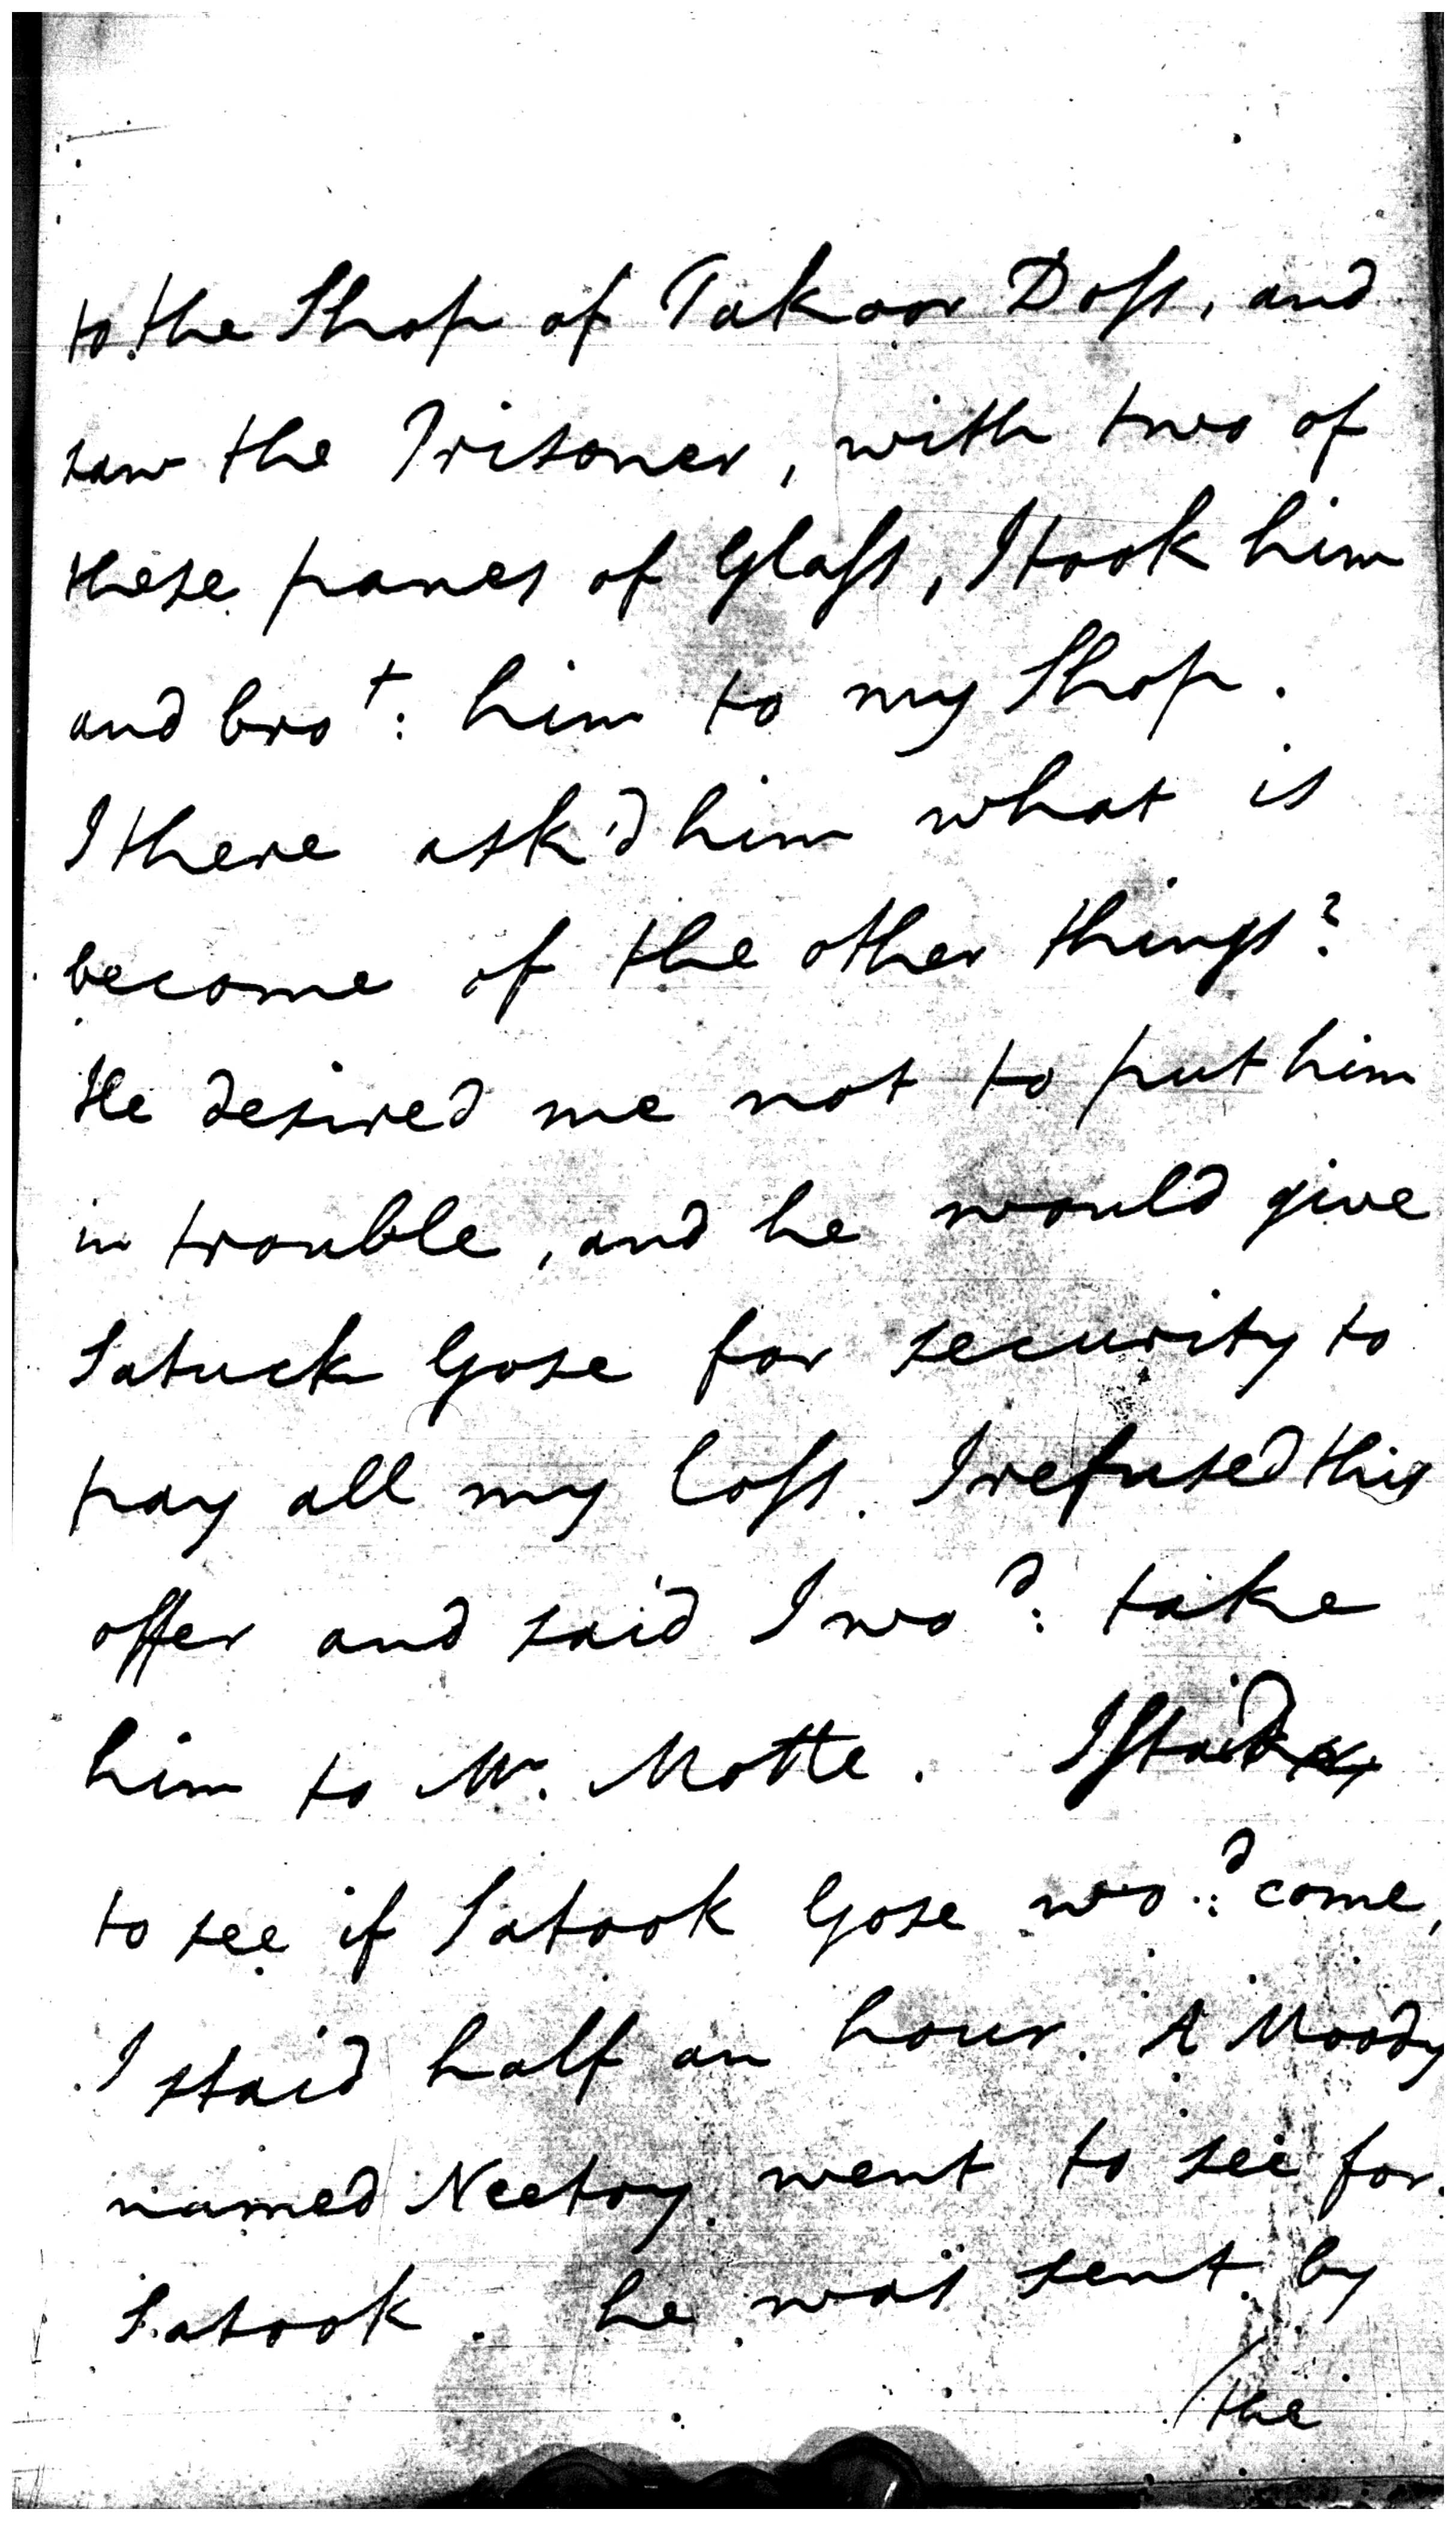 to the Shop of Takoor Doss, and
saw the Prisoner, with two of
these panes of Glass, I took him
and bro^t: him to my Shop.
I there ask'd him what is
become of the other things?
He desired me not to put him
in trouble, and he would give
Satuck Gose for security to
pay all my loss. I refused this
offer and said I wo^d: take
him to Mr. Motte. I staid
to see if Satook Gose wo^d: come,
I staid half an hour. A Moody
named Neetoy went to see for
Satook. he was sent by
the